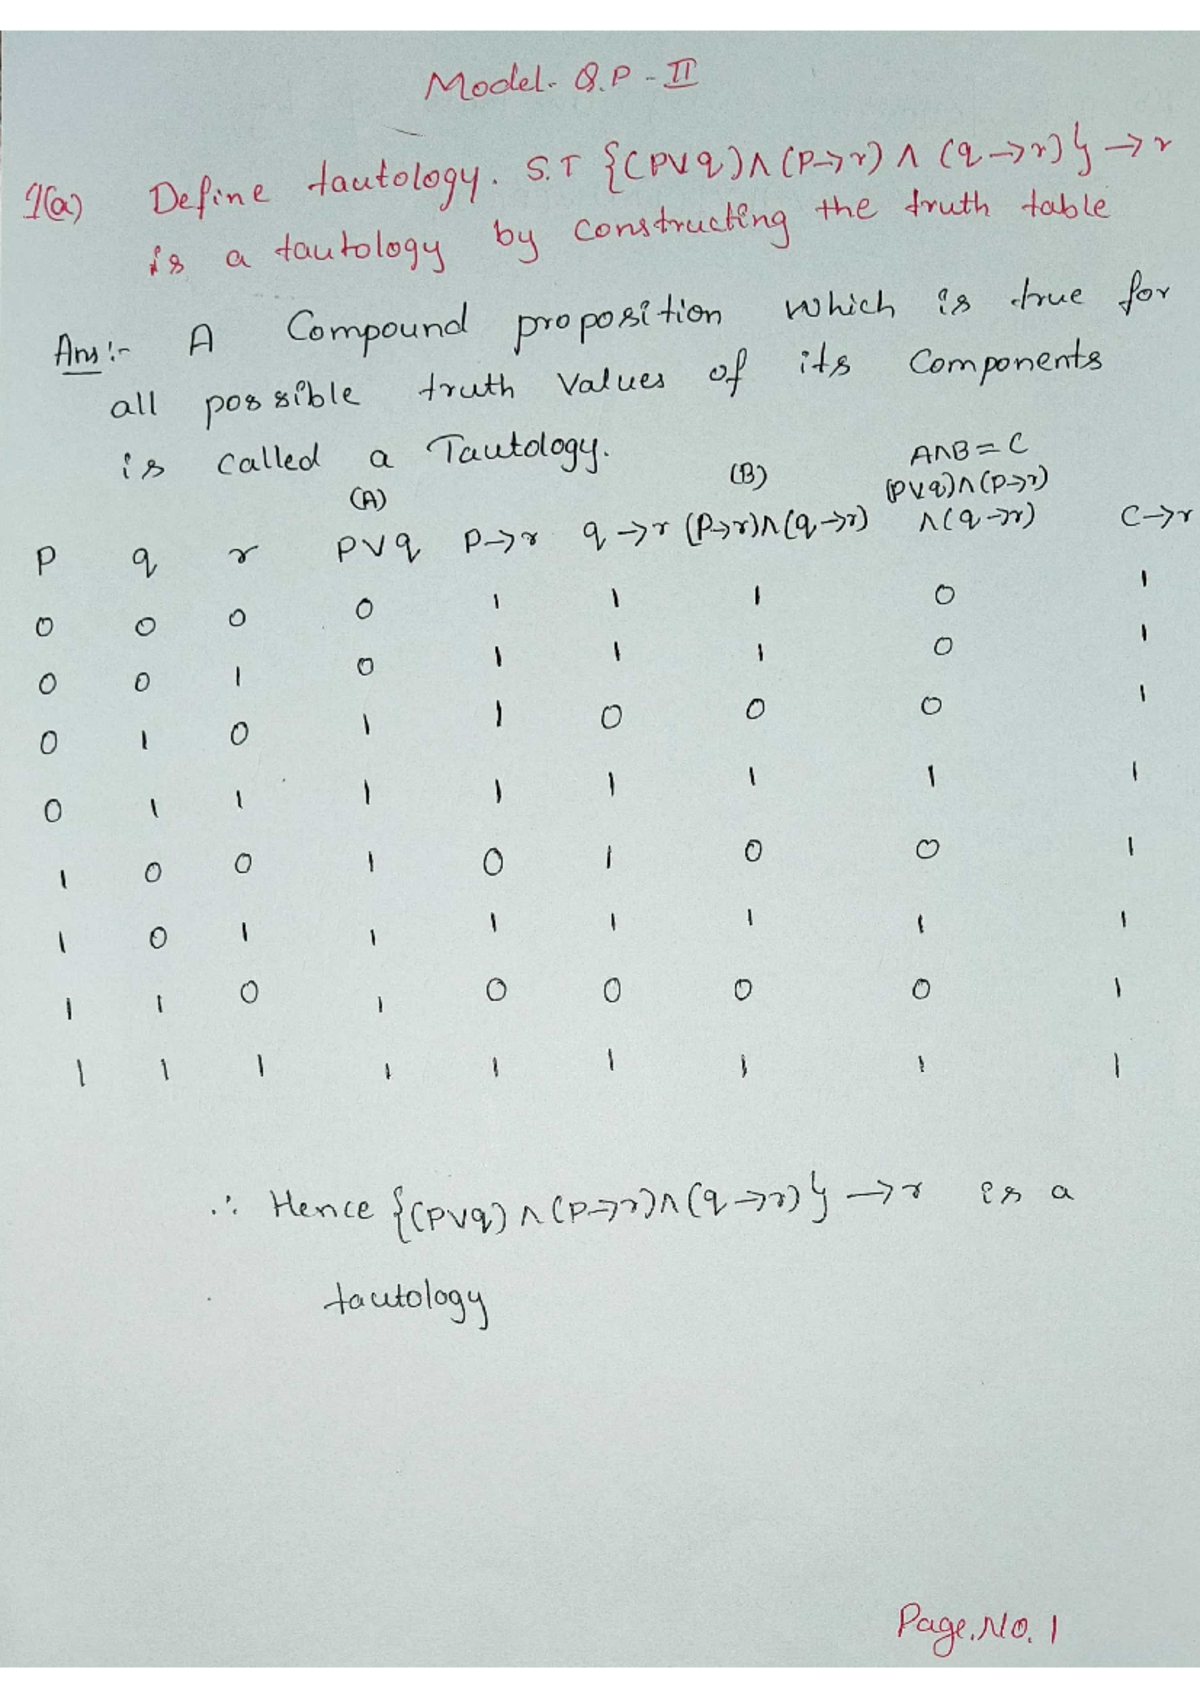 Model. Q.P - II
1(a) Define tautology. S.T {(P∨q)∧(P→r)∧(q→r)}→r
is a tautology by constructing the truth table
Ans:- A Compound proposition which is true for
all possible truth values of its Components
is called a Tautology.
(A) (B) A∧B = C
(P∨q)∧(P→r)
P q r P∨q P→r q→r (P→r)∧(q→r) ∧(q→r) C→r
0 0 0 0 1 1 1 0 1
0 0 1 0 1 1 1 0 1
0 1 0 1 1 0 0 0 1
0 1 1 1 1 1 1 1 1
1 0 0 1 0 1 0 0 1
1 0 1 1 1 1 1 1 1
1 1 0 1 0 0 0 0 1
1 1 1 1 1 1 1 1 1
∴ Hence {(P∨q)∧(P→r)∧(q→r)}→r is a
tautology
Page.No. 1